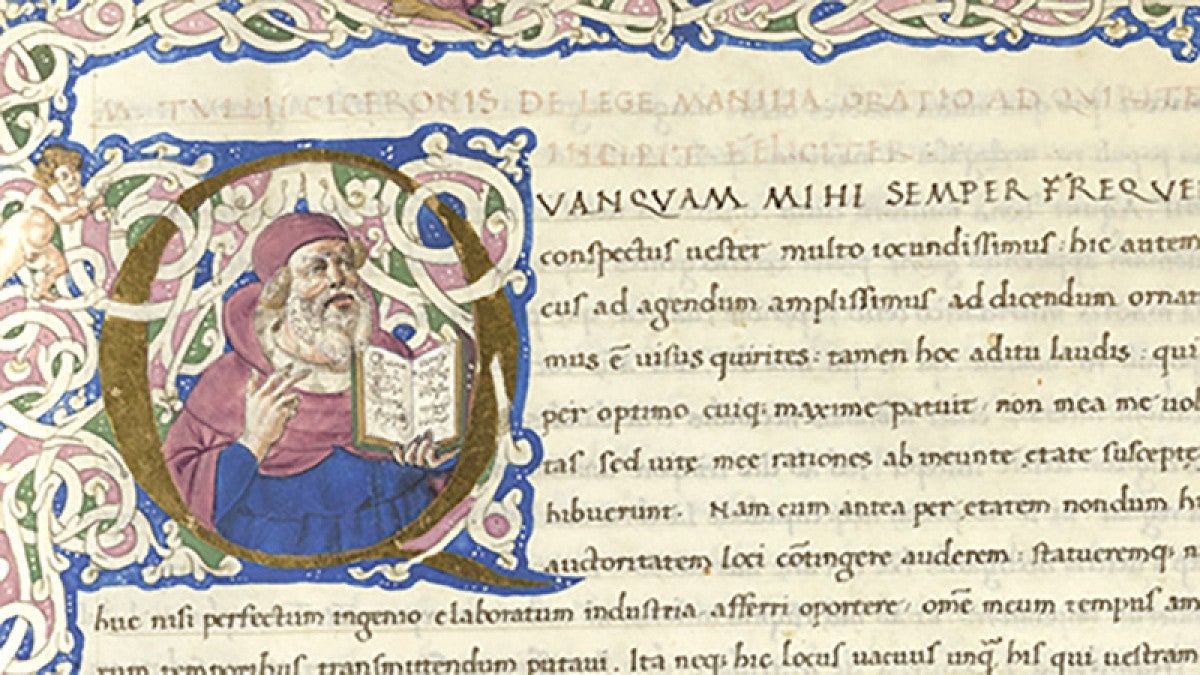 M TVLLII CICERONIS DE LEGE MANILIA ORATIO AD QVIRITE
INCIPIT FELICITER
QVANQVAM MIHI SEMPER FREQVE
conſpectuſ ueſter multo iocundiſſimuſ : hic autem
cuſ ad agendum ampliſſimuſ ad dicendum ornat
muſ ē uiſuſ quirites : tamen hoc aditu laudiſ : qui
per optimo cuiq; maxime patuit non mea me uol
taſ ſed uite mee rationes ab ineunte etate ſuſcepte
hibuerunt. Nam cum antea per etatem nondum h
auctoritatem loci cōtingere auderem : ſtatueremq; n
huc niſi perfectum ingenio elaboratum induſtria afferri oportere / omē meum tempuſ am
rum temporibuſ tranſmittendum putaui. Ita neq; hic locuſ uacuuſ unq̄ hiſ qui ueſtram